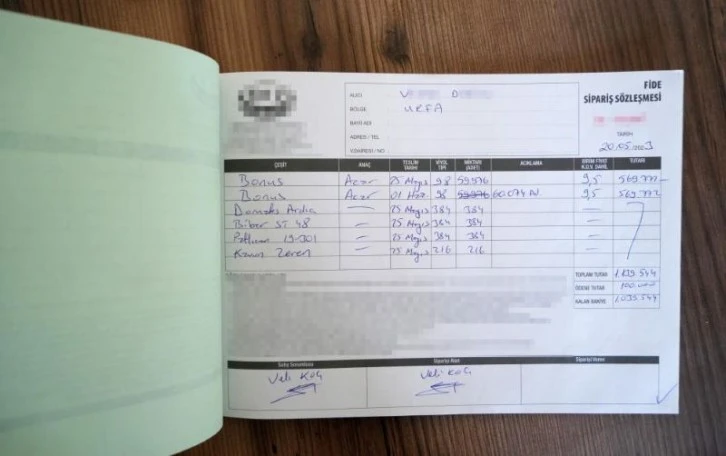 FİDE
SİPARİŞ SÖZLEŞMESİ
ALICI V D
BÖLGE URFA
BAYİ ADI
ADRES / TEL
V.DAİRESİ / NO
TARİH
20.05.2023
ÇEŞİT ANAÇ TESLİM TARİHİ VİYOL TİPİ MİKTARI (ADET) AÇIKLAMA BİRİM FİYAT K.D.V. DAHİL TUTARI
Bonus Acar 25 Mayıs 98 59976 9,5 569.772
Bonus Acar 01 Haz 98 59976 60.074 Ad. 9,5 569.772
Domates 25 Mayıs 384 384
Biber ST 48 25 Mayıs 384 384
Patlıcan 19-301 25 Mayıs 384 384
Kavun Zeren 25 Mayıs 216 216
TOPLAM TUTAR 1.139.544
ÖDEME TUTARI 100.000
KALAN BAKİYE 1.039.544
Satış Sorumlusu Siparişi Alan Siparişi Veren
Veli Koç Veli Koç